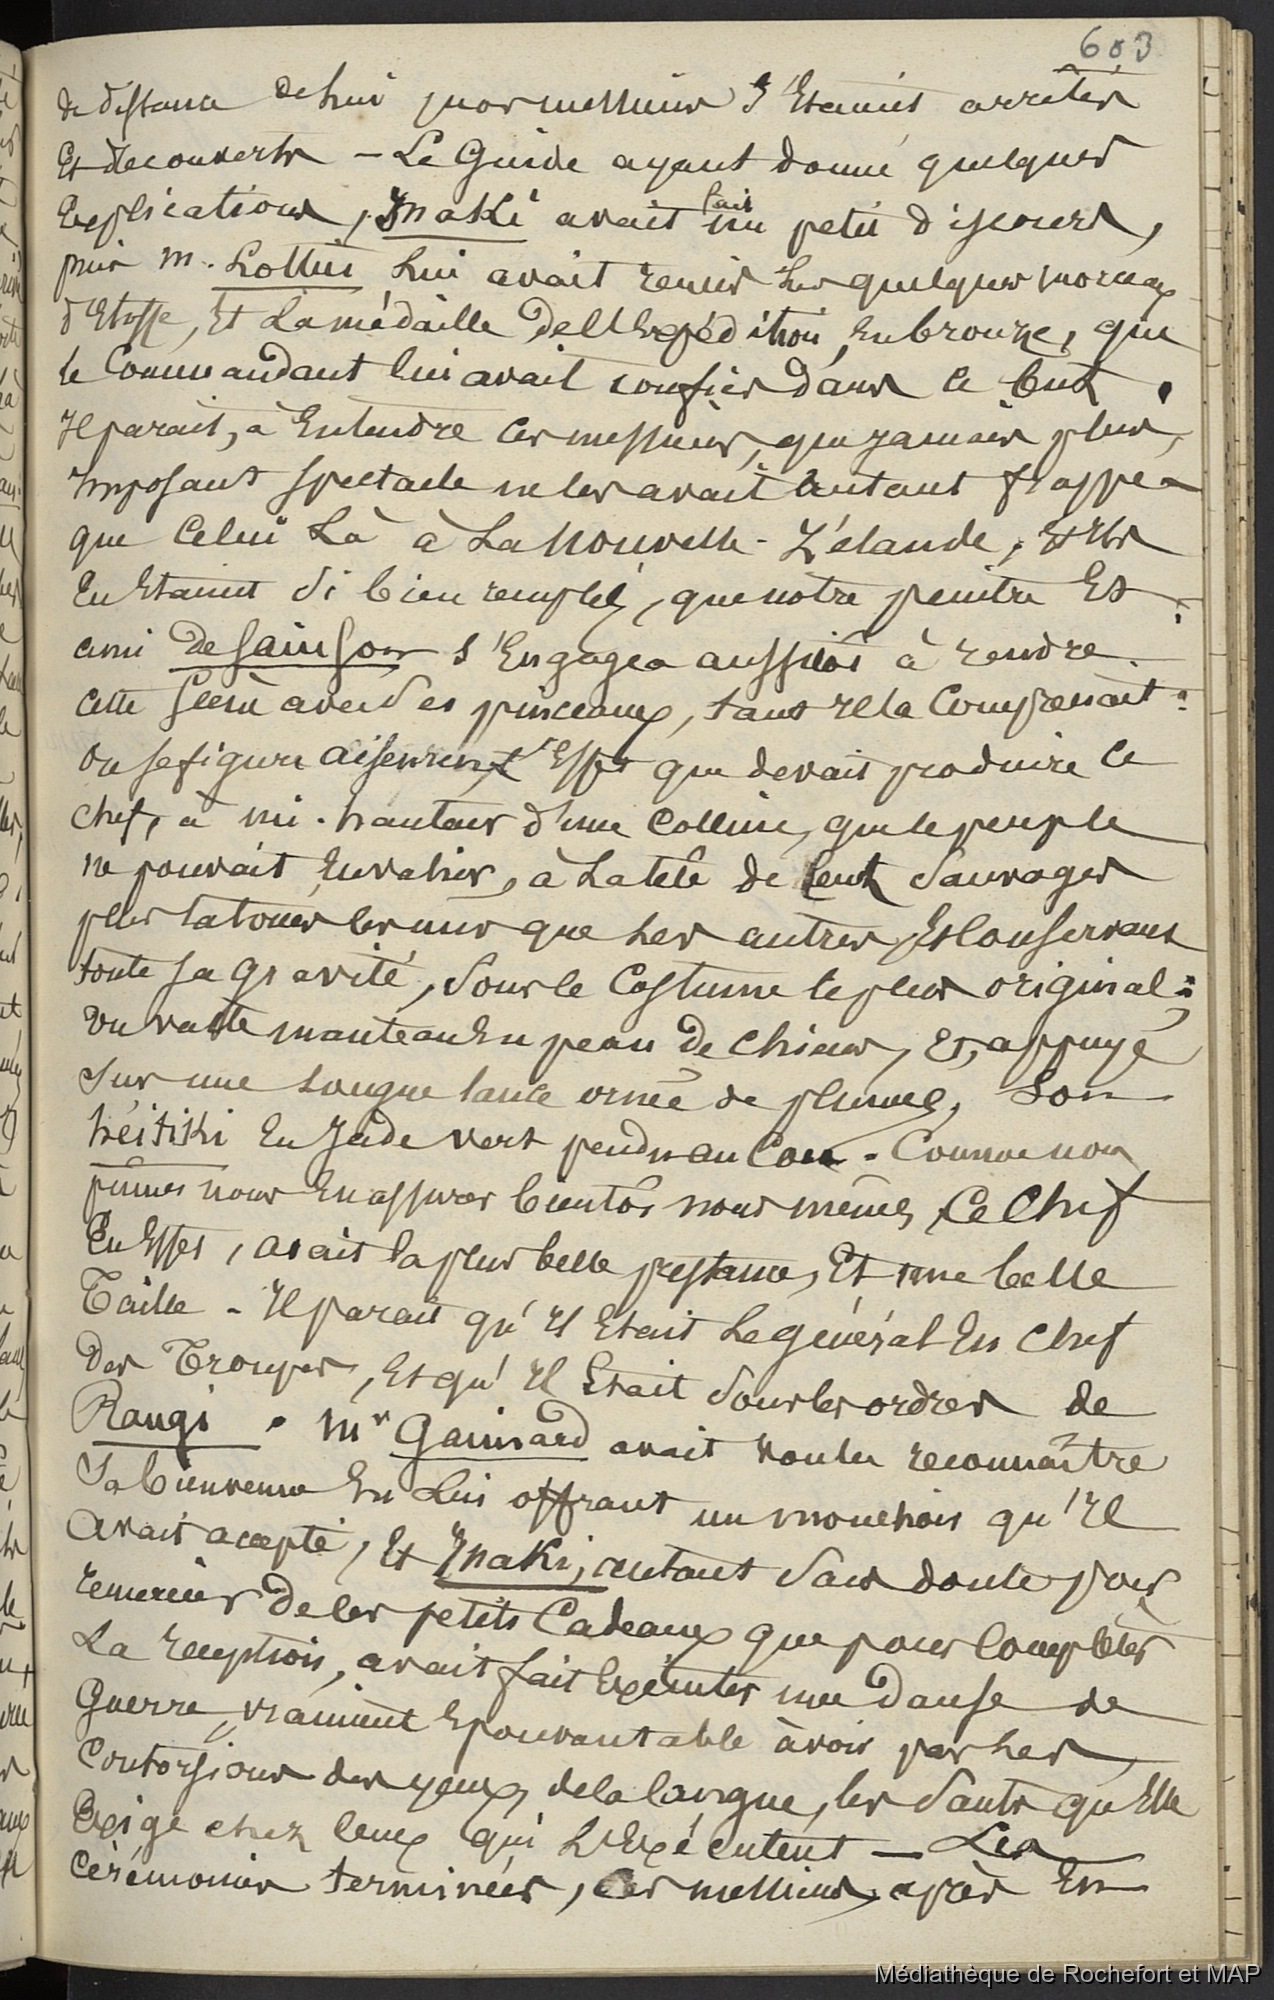 603
de distance de lui nos messieurs s'Etaient arretés
Et decouverts - Le Guide ayant donné quelques
Explications, Inaki avait fait un petit discours,
puis M. Lottin lui avait remis les quelques morceaux
d'Etoffe, Et La médaille de l'Expédition, En bronze, que
le Commandant lui avait confiée dans ce but.
Il parait, à Entendre ces messieurs, que jamais plus,
Imposant spectacle ne les avait autant frappés
que Celui Là à La Nouvelle-Zélande, Et Ils
En Etaient si bien remplis, que notre peintre Et
ami De Sainson s'Engagea aussitôt à rendre
cette Scène avec Ses pinceaux, tant Il la Comprenait:
on se figure aisement l'Effet que devait produire ce
chef, à mi-hauteur d'une Colline, que le peuple
ne pouvait Envahir, à La tête de Cent Sauvages
plus tatoués les uns que Les autres, Et Conservant
toute sa Gravité, Sous le Costume le plus original:
un vaste manteau En peau de Chiens, Et, appuyé
Sur une longue lance ornée de plumes, Son
héitiki En Jade vert pendu au Cou - Comme nous
pûmes nous En assurer bientôt nous mêmes, Ce Chef
En Effet, avait la plus belle prestance, Et une belle
Taille - Il parait qu'Il Etait Le général En Chef
Des Troupes, Et qu'Il Etait Sous les ordres de
Rangi. Mr Gaimard avait voulu reconnaître
Sa bienvenue En Lui offrant un mouchoir qu'Il
Avait accepté, Et Inaki, autant Sans doute pour
remercier De ces petits Cadeaux que pour Completer
La reception, avait fait Exécuter une Danse de
Guerre, vraiment Epouvantable à voir par Les
Contorsions des yeux, de la langue, les Sauts qu'Elle
Exige chez Ceux qui L'Exécutent - Les
Cérémonies terminées, Ces messieurs, après En
Médiathèque de Rochefort et MAP